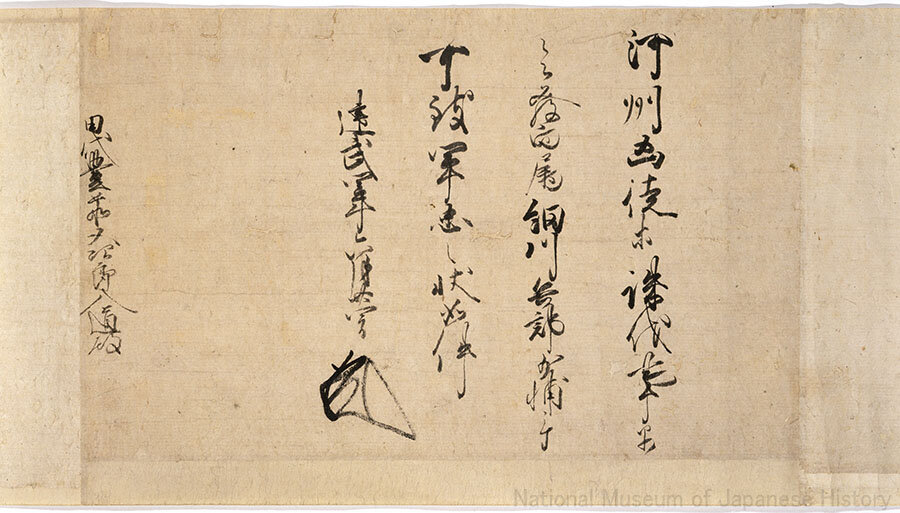 河州凶徒等誅伐事早
々發向属細川兵部少輔手
可致軍忠之状如件
建武四年
田代豊前又次郎入道殿
National Museum of Japanese History